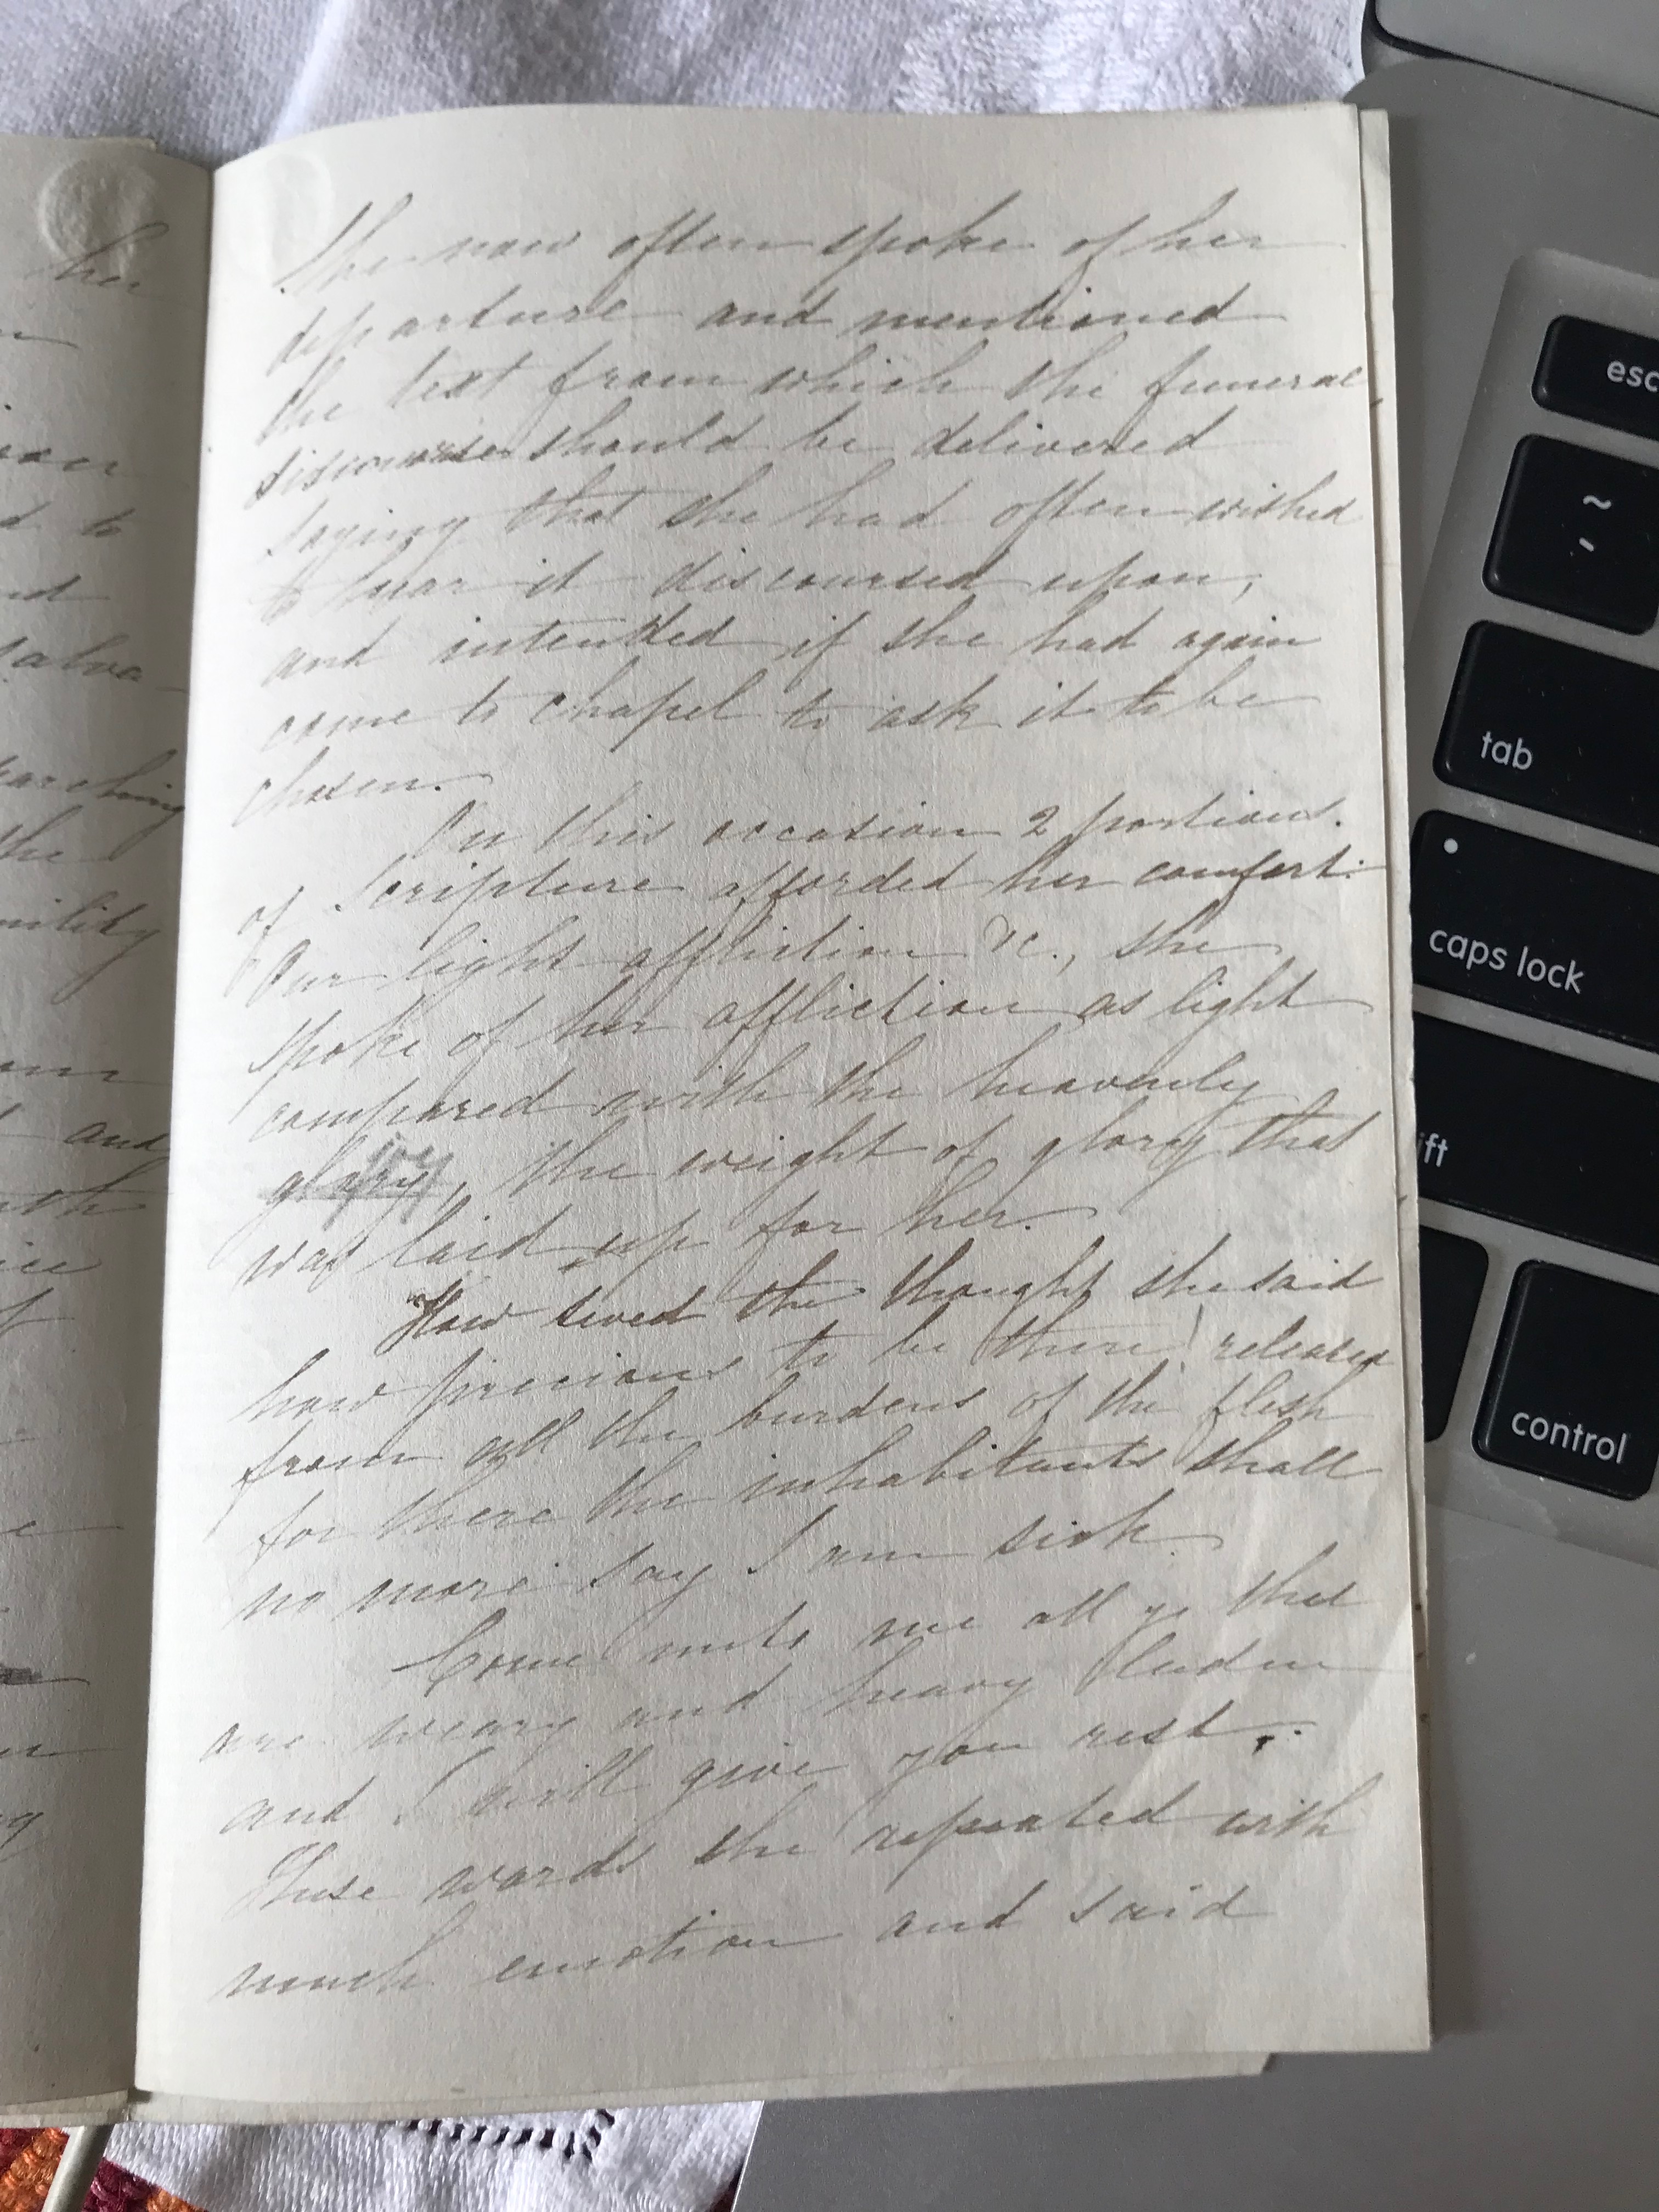 her
d to
nd
salva-
the
and
She now often spoke of her
departure and mentioned
the text from which the funeral
discourse should be delivered
saying that she had often wished
to hear it discoursed upon,
and intended if she had again
come to chapel to ask it to be
chosen.
On this occasion 2 portions.
of Scripture afforded her comfort:
Our light affliction &c., she
spoke of her affliction as light
compared with the heavenly
joy
glory, the weight of glory that
was laid up for her.
"How sweet the thought she said
how precious to be there! released
from all the burdens of the flesh
for there the inhabitants shall
no more say I am sick.
Come unto me all ye that
are weary and heavy laden
and I will give you rest.
These words she repeated with
much emotion and said
esc
~
tab
caps lock
ift
control